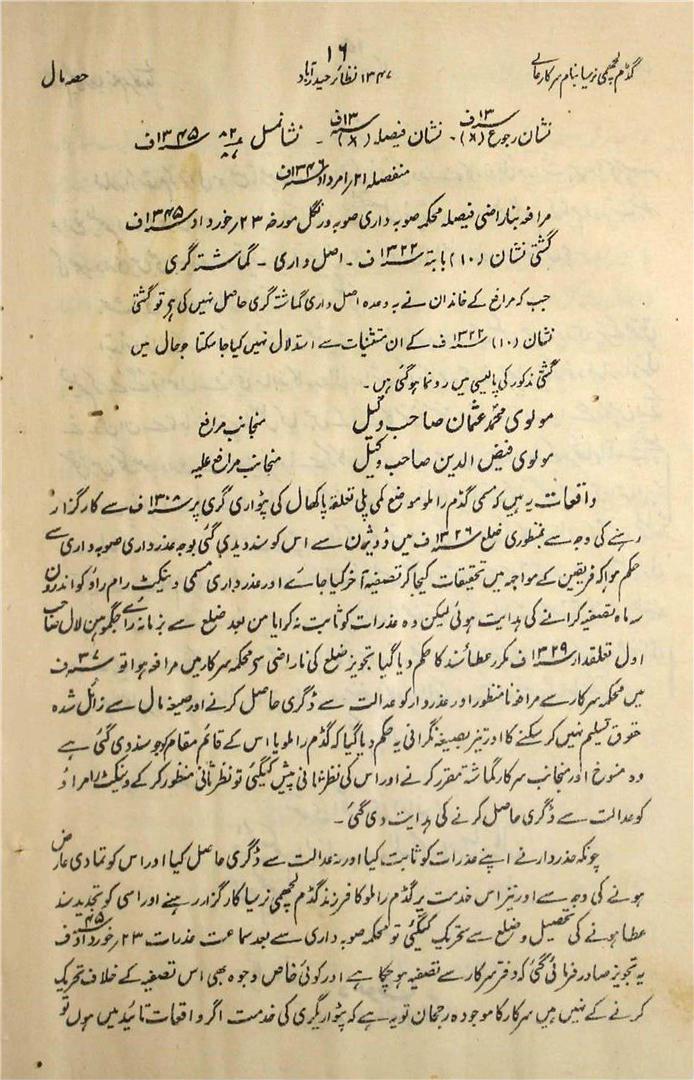 ۱۶
گڈم لچھمی نرسیا بنام سرکار عالی
۱۳۴۷ نظائر حیدرآباد
حصہ مال
نشان رجوع (×) ۱۳ف ۔ نشان فیصلہ (×) ۱۳ف ۔ نشان مسل ۸۲ ۱۳۴۵ف
منفصلہ ۲۱؍ امرداد ۱۳۴۶ف
مرافعہ بناراضی فیصلہ محکمہ صوبہ داری صوبہ ورنگل مورخہ ۲۳؍ خورداد ۱۳۴۵ف
گشتی نشان (۱۰) بابتہ ۱۳۲۲ ف ۔ اصل داری ۔ گماشتہ گری
جب کہ مرافع کے خاندان نے بہ وعدہ اصل داری گماشتہ گری حاصل نہیں کی ہو تو گشتی
نشان (۱۰) ۱۳۲۲ ف کے ان مستثنیات سے استدلال نہیں کیا جا سکتا جو حال میں
گشتی مذکور کی پالیسی میں رونما ہو گئی ہیں ۔
مولوی محمد عثمان صاحب وکیل منجانب مرافع
مولوی فیض الدین صاحب وکیل منجانب مرافع علیہ
واقعات یہ ہیں کہ مسمی گڈم راملو موضع کمی پلی تعلقہ پاکھال کی پٹواری گری پر ۱۳۰۸ ف سے کارگزار
رہنے کی وجہ سے بمنظوری ضلع ۱۳۲۶ ف میں ڈویژن سے اس کو سند دیدی گئی بوجہ عذرداری صوبہ داری سے
حکم ہوا کہ فریقین کے مواجہ میں تحقیقات کیجا کر تصفیہ آخر کیا جائے اور عذرداری مسمی وینکٹ رام راؤ کو اندرون
سہ ماہ تصفیہ کرانے کی ہدایت ہوئی لیکن وہ عذرات کو ثابت نہ کرایا من بعد ضلع سے بزمانہ رائے جگموہن لال صاحب
اول تعلقدار ۱۳۲۹ ف مکرر عطائے سند کا حکم دیا گیا تجویز ضلع کی ناراضی سے محکمہ سرکار میں مرافعہ ہوا تو ۳۷ ف
میں محکمہ سرکار سے مرافعہ نامنظور اور عذردار کو عدالت سے ڈگری حاصل کرنے اور صیغہ مال سے زائل شدہ
حقوق تسلیم نہیں کر سکنے کا اور نیز بصیغہ نگرانی یہ حکم دیا گیا کہ گڈم راملو یا اس کے قائم مقام کو جو سند دی گئی ہے
وہ منسوخ اور منجانب سرکار گماشتہ مقرر کرنے اور اس کی نظر ثانی پیش کیگئی تو نظر ثانی منظور کر کے وینکٹ راما راؤ
کو عدالت سے ڈگری حاصل کرنے کی ہدایت دی گئی ۔
چونکہ عذردار نے اپنے عذرات کو ثابت کیا اور نہ عدالت سے ڈگری حاصل کیا اور اس کو تمادی عارض
ہونے کی وجہ سے اور نیز اس خدمت پر گڈم راملو کا فرزند گڈم لچھمی نرسیا کارگزار رہنے اور اسی کو تجدید سند
عطا ہونے کی تحصیل و ضلع سے تحریک کیگئی تو محکمہ صوبہ داری سے بعد سماعت عذرات ۲۳؍ خورداد ۴۵ف
یہ تجویز صادر فرمائی گئی کہ دفتر سرکار سے تصفیہ ہو چکا ہے اور کوئی خاص وجوہ بھی اس تصفیہ کے خلاف تحریک
کرنے کے نہیں ہیں سرکار کا موجودہ رجحان تو یہ ہے کہ پٹواریگری کی خدمت اگر واقعات تائید میں ہوں تو